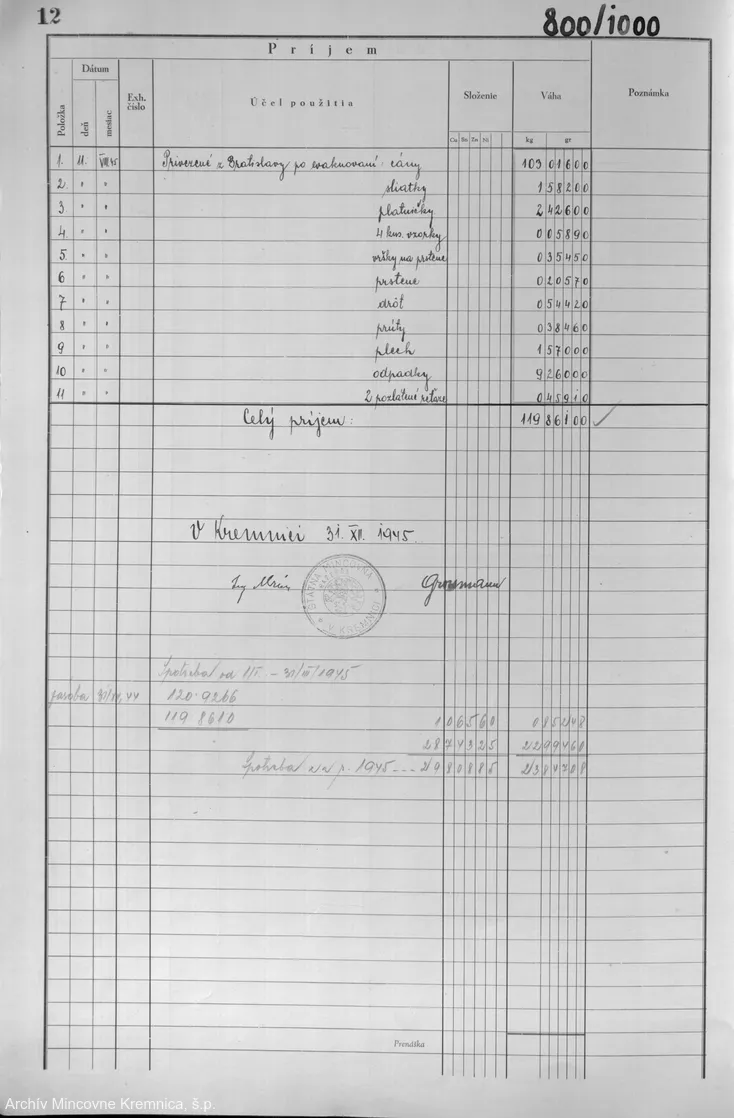 12
800/1000
Príjem
Položka Dátum deň mesiac Exh. číslo Účel použitia Složenie Cu Sn Zn Ni Váha kg gr Poznámka
1. 11. VIII 45 Privezené z Bratislavy po evakuovaní: cány 103 01600
2. " " sliatky 158200
3 " " platničky 242600
4. " " 4 kus. vzorky 005890
5. " " vršky na prstene 035450
6 " " prstene 020570
7 " " drôt 054420
8 " " prúty 038460
9 " " plech 157000
10 " " odpadky 926000
11 " " 2 pozlátené reťaze 045910
Celý príjem: 119 86100
V Kremnici 31. XII. 1945.
Ing
ŠTÁTNA MINCOVŇA V KREMNICI
Grosmann
Spotreba od 1/I. – 31/III/1945
zasoba 31/XII. 44 120.9266
119 8610 1 06560 085248
28 74325 2299460
Spotreba za r. 1945 --- 29 80885 2384708
Prenáška
Archív Mincovne Kremnica, š.p.